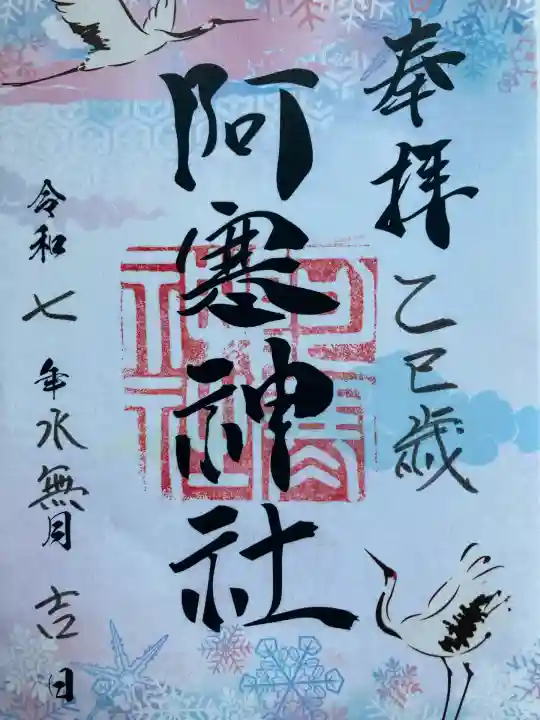 奉拝 乙巳歳
阿寒神社
令和七年水無月吉日